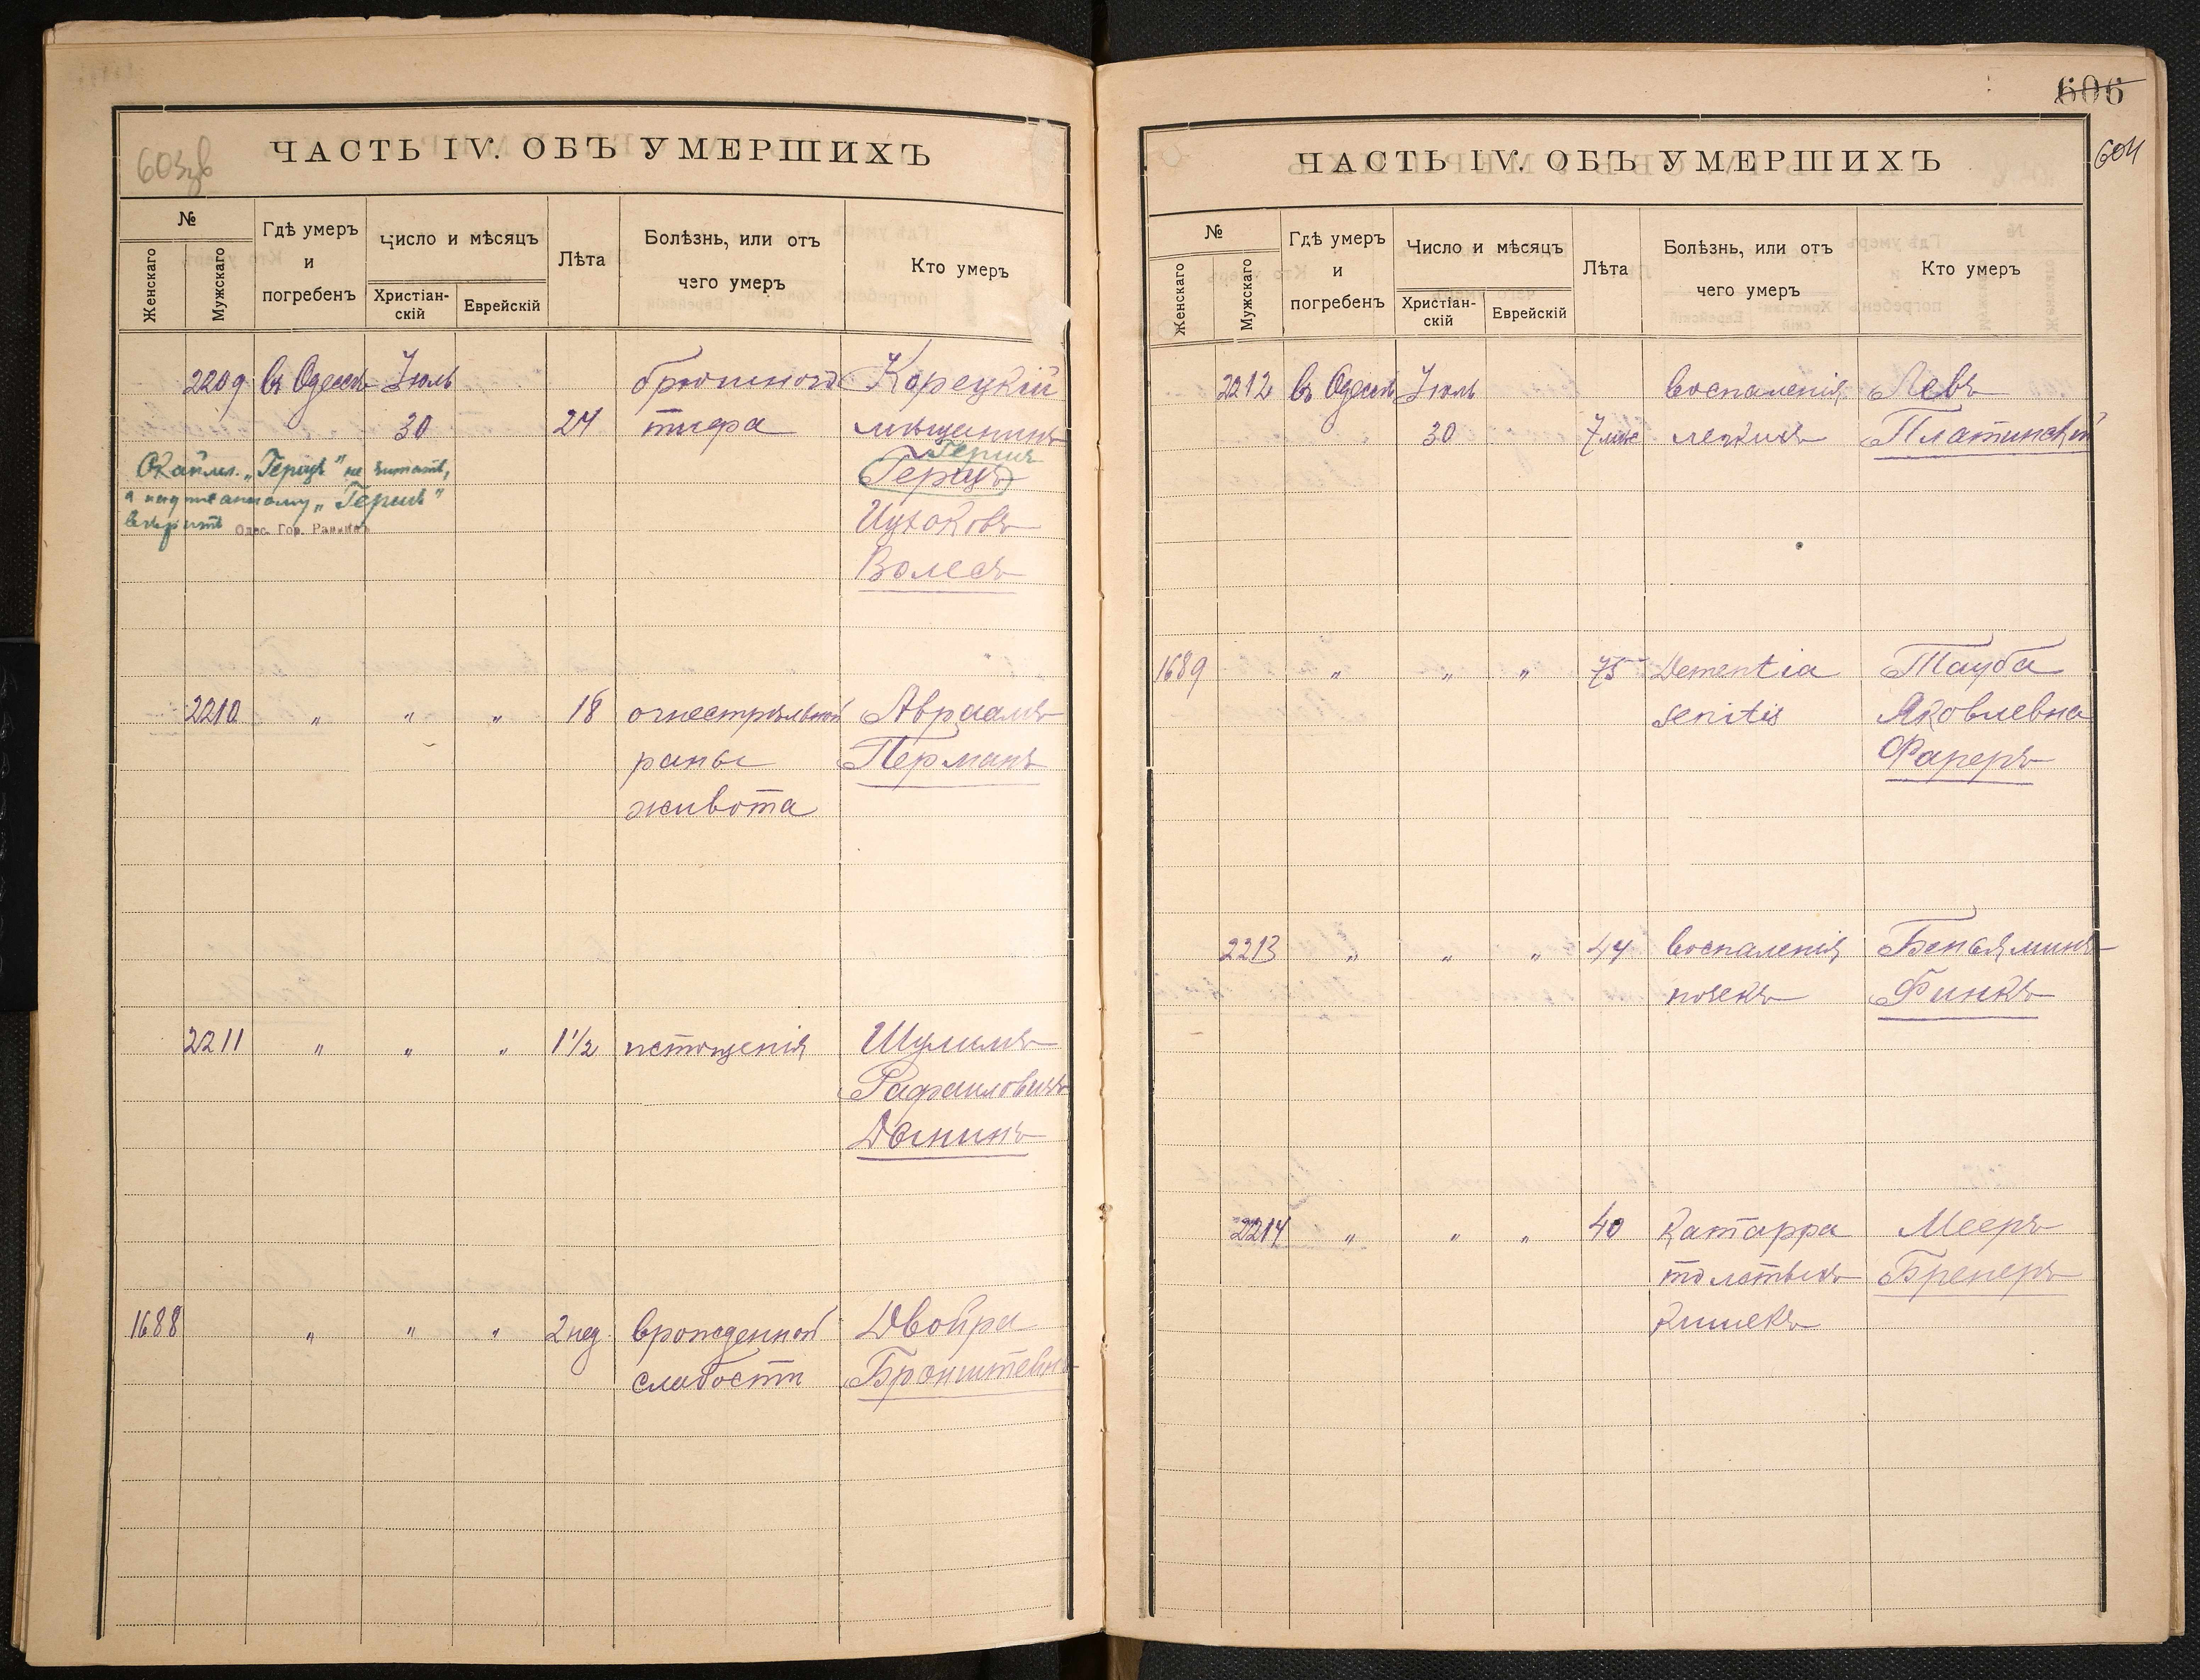 603зв
ЧАСТЬ IV. ОБЪ УМЕРШИХЪ
№
Женскаго
Мужскаго
Гдѣ умеръ
и
погребенъ
Число и мѣсяцъ
Христіан-
скій
Еврейскій
Лѣта
Болѣзнь, или отъ
чего умеръ
Кто умеръ
2209 въ Одессѣ Іюль брюшного Корецкій
30 24 тифа мѣщанинъ
Гершъ
Герцъ
Ицковъ
Волесъ
Окайml. „Герцъ" не читать,
а надписанному „Гершъ"
вѣрить Одес. Гор. Раввинъ
2210 „ „ „ 18 огнестрѣльной Авраамъ
раны Перманъ
живота
2211 „ „ „ 1½ истощенія Шулимъ
Рафаиловичъ
Дынинъ
1688 „ „ „ 2 нед. врожденной Двойра
слабости Бронштейнъ
606
604
ЧАСТЬ IV. ОБЪ УМЕРШИХЪ
№
Женскаго
Мужскаго
Гдѣ умеръ
и
погребенъ
Число и мѣсяцъ
Христіан-
скій
Еврейскій
Лѣта
Болѣзнь, или отъ
чего умеръ
Кто умеръ
2212 въ Одессѣ Іюль воспаленія Левъ
30 7 мѣс легкихъ Платинскій
1689 „ „ „ 75 Dementia Тауба
senilis Яковлевна
Фареръ
2213 „ „ „ 44 воспаленія Беньяминъ
почекъ Финкъ
2214 „ „ „ 40 Катарра Мееръ
толстыхъ Бренеръ
кишекъ